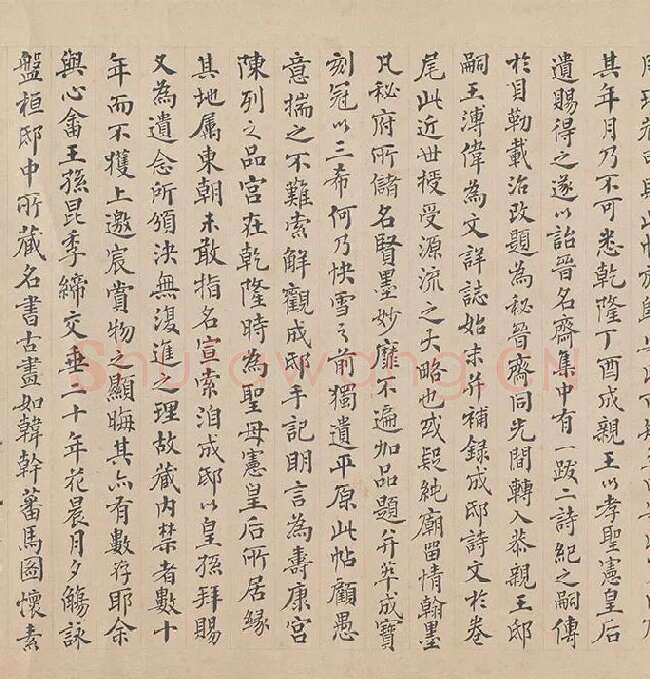 其年月乃不可悉乾隆丁酉成親王以孝聖憲皇后
遺賜得之遂以詒晉名齋集中有一跋二詩紀之嗣傳
於貝勒載治改題為秘晉齋同光間轉入恭親王邸
嗣王溥偉為文詳誌始末并補錄成邸詩文於卷
尾此近世授受源流之大略也或疑純廟留情翰墨
凡秘府所儲名賢墨妙靡不遍加品題并萃成寶
刻冠以三希何乃快雪之前獨遺平原此帖顧愚
意揣之不難索解觀成邸手記明言為壽康宮
陳列之品宮在乾隆時為聖母憲皇后所居緣
其地属東朝未敢指名宣索洎成邸以皇孫拜賜
又為遺念所頒決無復進之理故藏內禁者數十
年而不獲上邀宸賞物之顯晦其亦有數存耶余
與心畬王孫昆季締交垂二十年花晨月夕觴詠
盤桓邸中所藏名書古畫如韓幹蕃馬圖懷素
Shufawang.CN